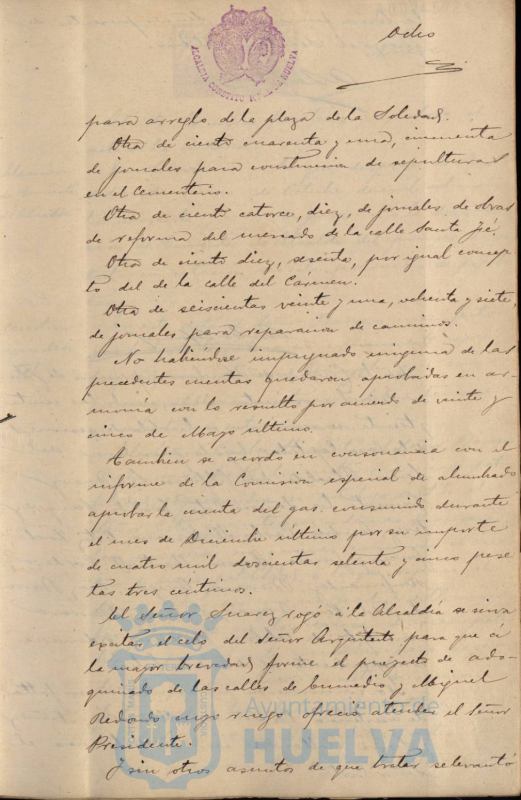 Ocho
ALCALDIA CONSTITUCIONAL DE HUELVA
para arreglo de la plaza de la Soledad.
Otra de ciento cuarenta y una, cincuenta
de jornales para construccion de sepulturas
en el Cementerio.
Otra de ciento catorce, diez, de jornales de obras
de reforma del mercado de la calle Santa Fé.
Otra de ciento diez, sesenta, por igual concep
to del de la calle del Cármen.
Otra de seiscientas veinte y una, ochenta y siete,
de jornales para reparacion de caminos.
No habiéndose impugnado ninguna de las
precedentes cuentas quedaron aprobadas en ar-
monía con lo resuelto por acuerdo de veinte y
cinco de Mayo último.
Tambien se acordó en consonancia con el
informe de la Comision especial de alumbrado
aprobar la cuenta del gas consumido durante
el mes de Diciembre último por su importe
de cuatro mil doscientas setenta y cinco pese
tas tres céntimos.
El Señor Suarez rogó á la Alcaldía se sirva
excitar el celo del Señor Arquitecto para que á
la mayor brevedad forme el proyecto de ado-
quinado de las calles de y Miguel
Redondo cuyo ruego ofreció atender el Señor
Presidente.
Y sin otros asuntos de que tratar se levantó
Ayuntamiento de
HUELVA